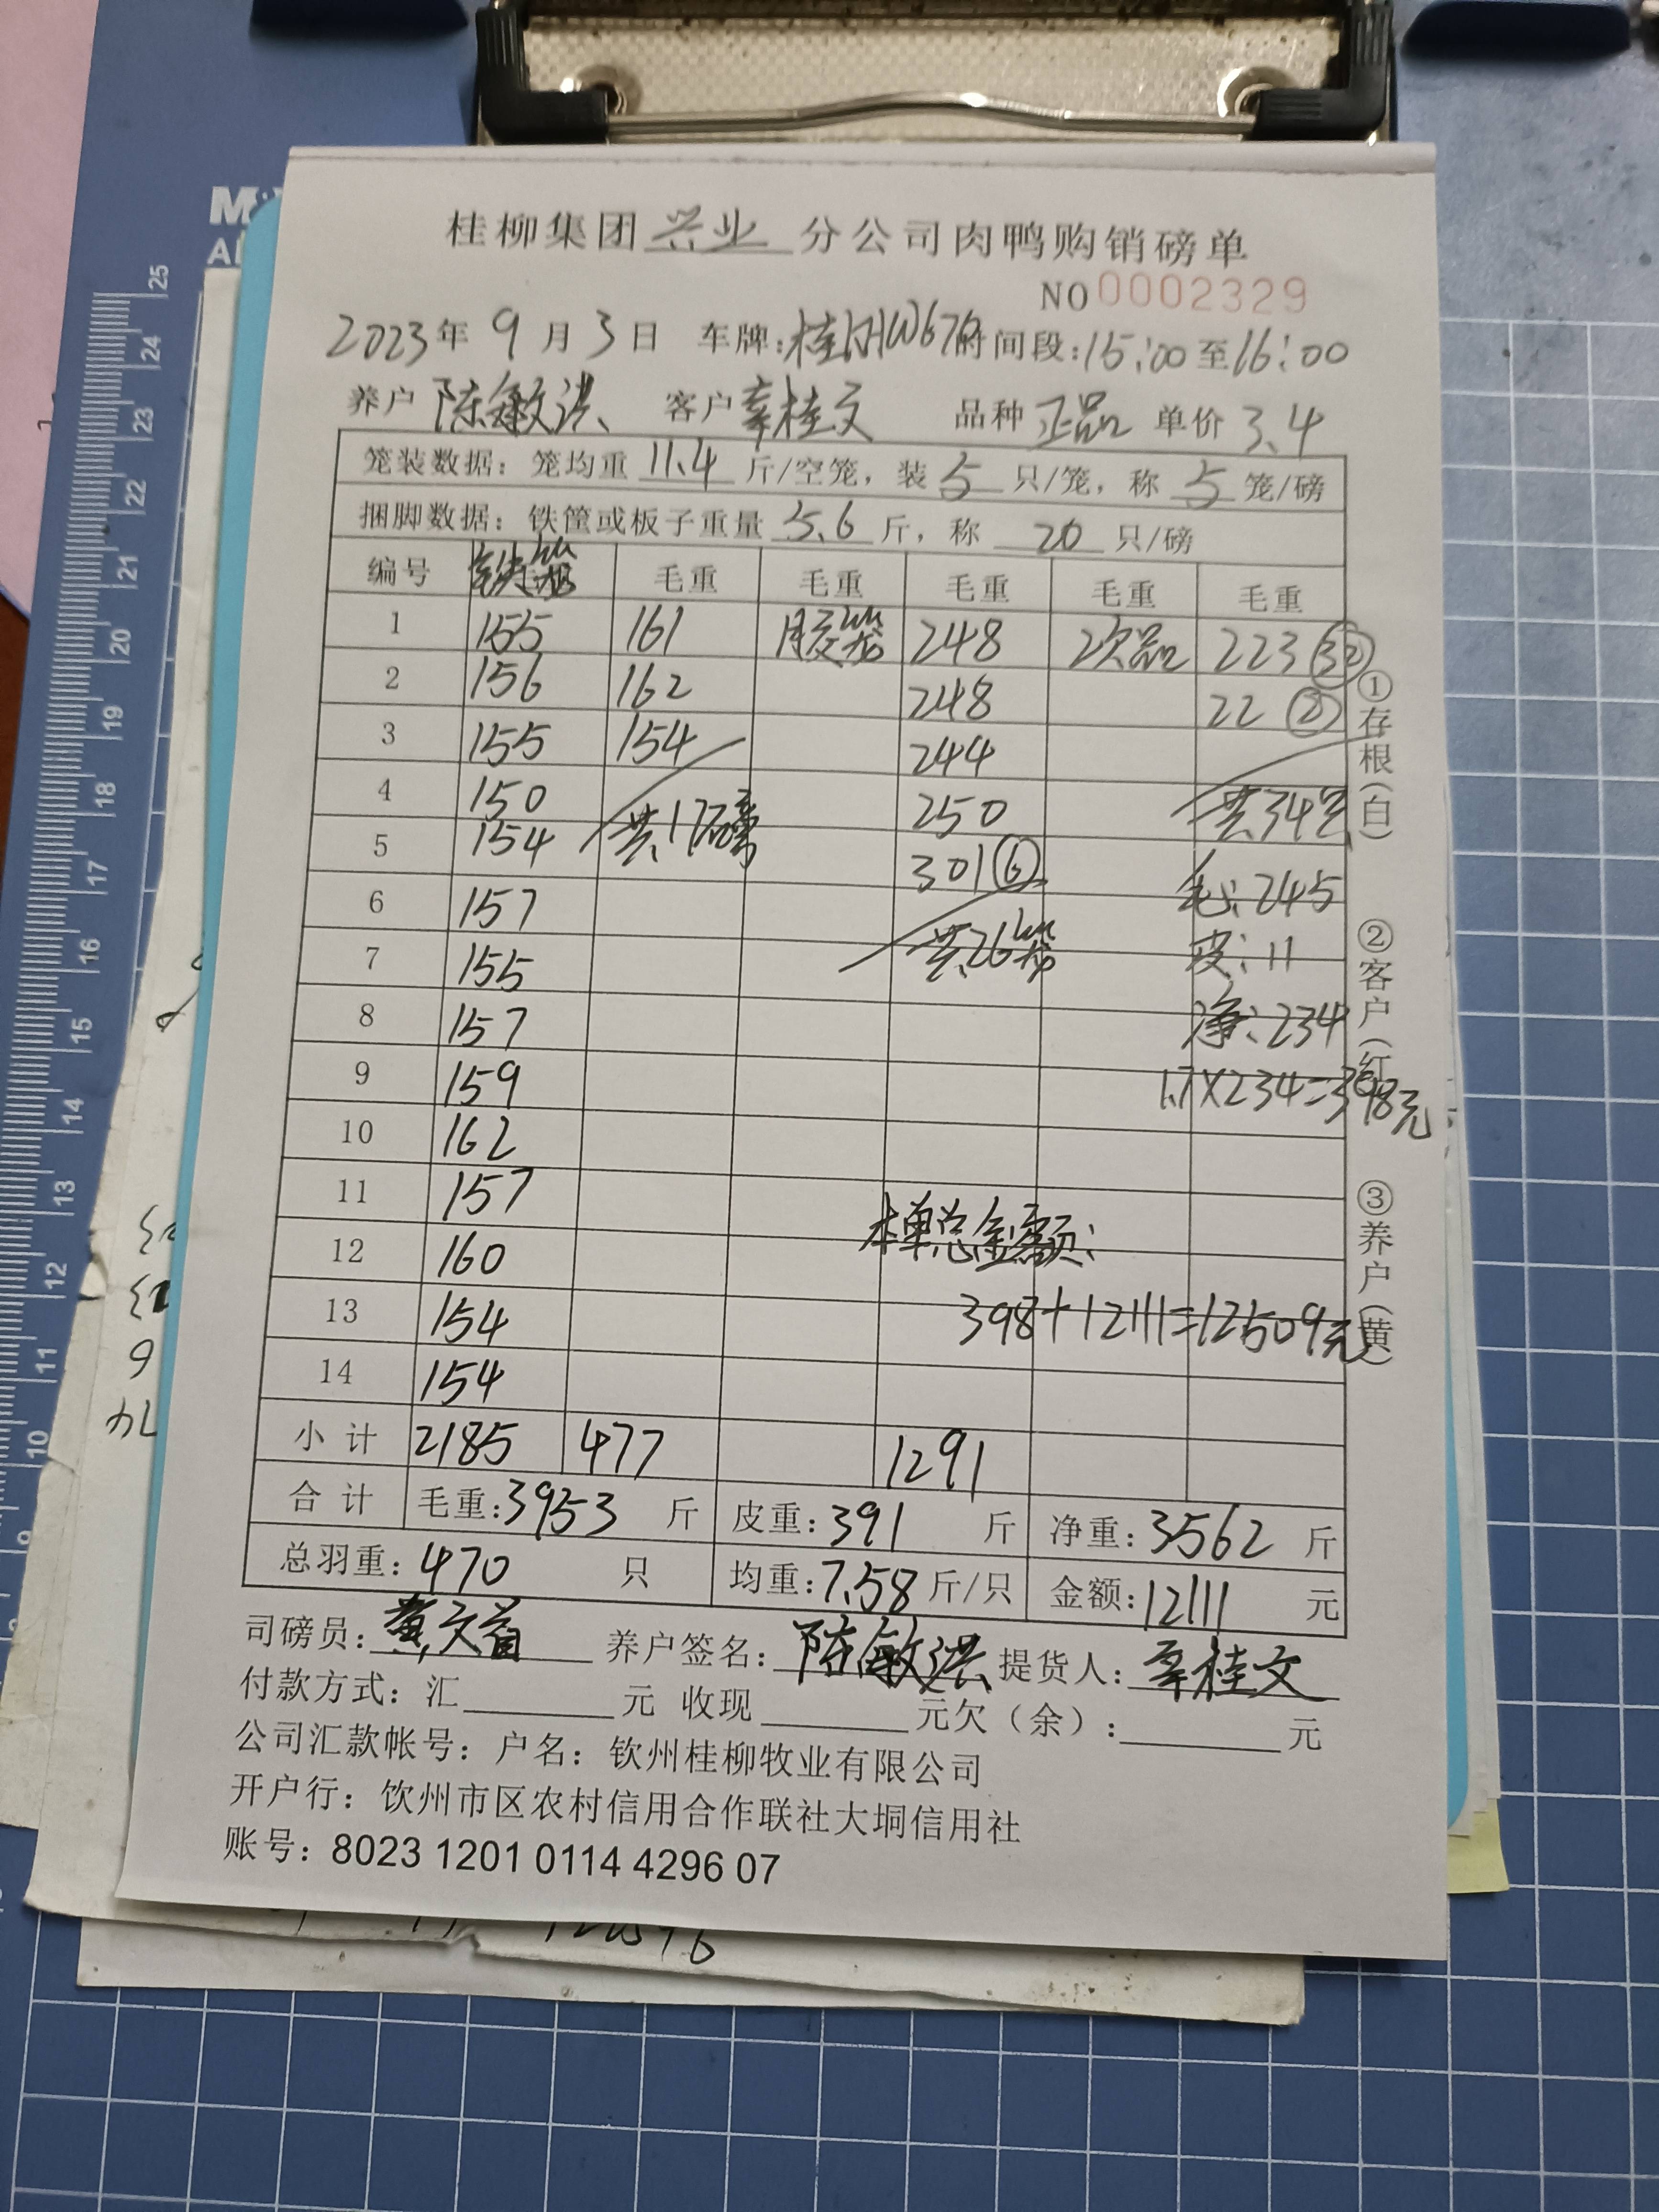 桂柳集团兴业分公司肉鸭购销磅单
NO0002329
2023年9月3日 车牌: 时间段:15:00至16:00
养户陈敏洪 客户辜桂文 品种正品 单价3.4
笼装数据：笼均重11.4斤/空笼，装5只/笼，称5笼/磅
捆脚数据：铁筐或板子重量5.6斤，称20只/磅
编号 铁笼 毛重 毛重 毛重 毛重 毛重
1 155 161 胶笼 248 次品 223 (32)
2 156 162 248 22 (2)
3 155 154 244
4 150 共17磅 250 共34只
5 154 301(6) 毛:245
6 157 共26笼 皮:11
7 155 净:234
8 157 1.7×234=398元
9 159
10 162
11 157
12 160 本单总金额:
13 154 398+12111=12509元
14 154
小计 2185 477 1291
合计 毛重:3953斤 皮重:391斤 净重:3562斤
总羽重:470只 均重:7.58斤/只 金额:12111元
司磅员: 养户签名:陈敏洪 提货人:辜桂文
付款方式：汇 元 收现 元欠（余）: 元
公司汇款帐号：户名：钦州桂柳牧业有限公司
开户行：钦州市区农村信用合作联社大垌信用社
账号：8023 1201 0114 4296 07
①存根(白) ②客户(红) ③养户(黄)
25
24
23
22
21
20
19
18
17
16
15
14
13
12
11
10